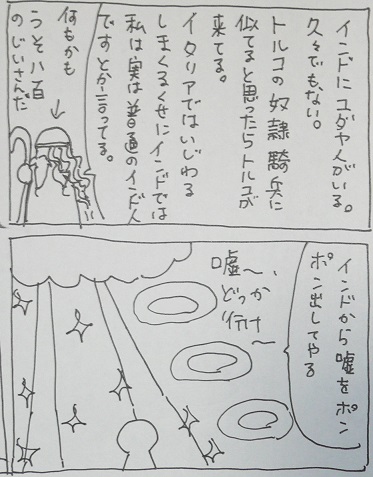 インドにユダヤ人がいる。
久々でも、ない。
トルコの奴隷騎兵に
似てると思ったらトルコが
来てる。
イタリアではいじわる
しまくるくせにインドでは
私は実は普通のインド人
ですとか言ってる。
何もかも
うそ八百
のじいさんだ
インドから嘘をポン
ポン出してやる
嘘〜、
どっか
行け〜